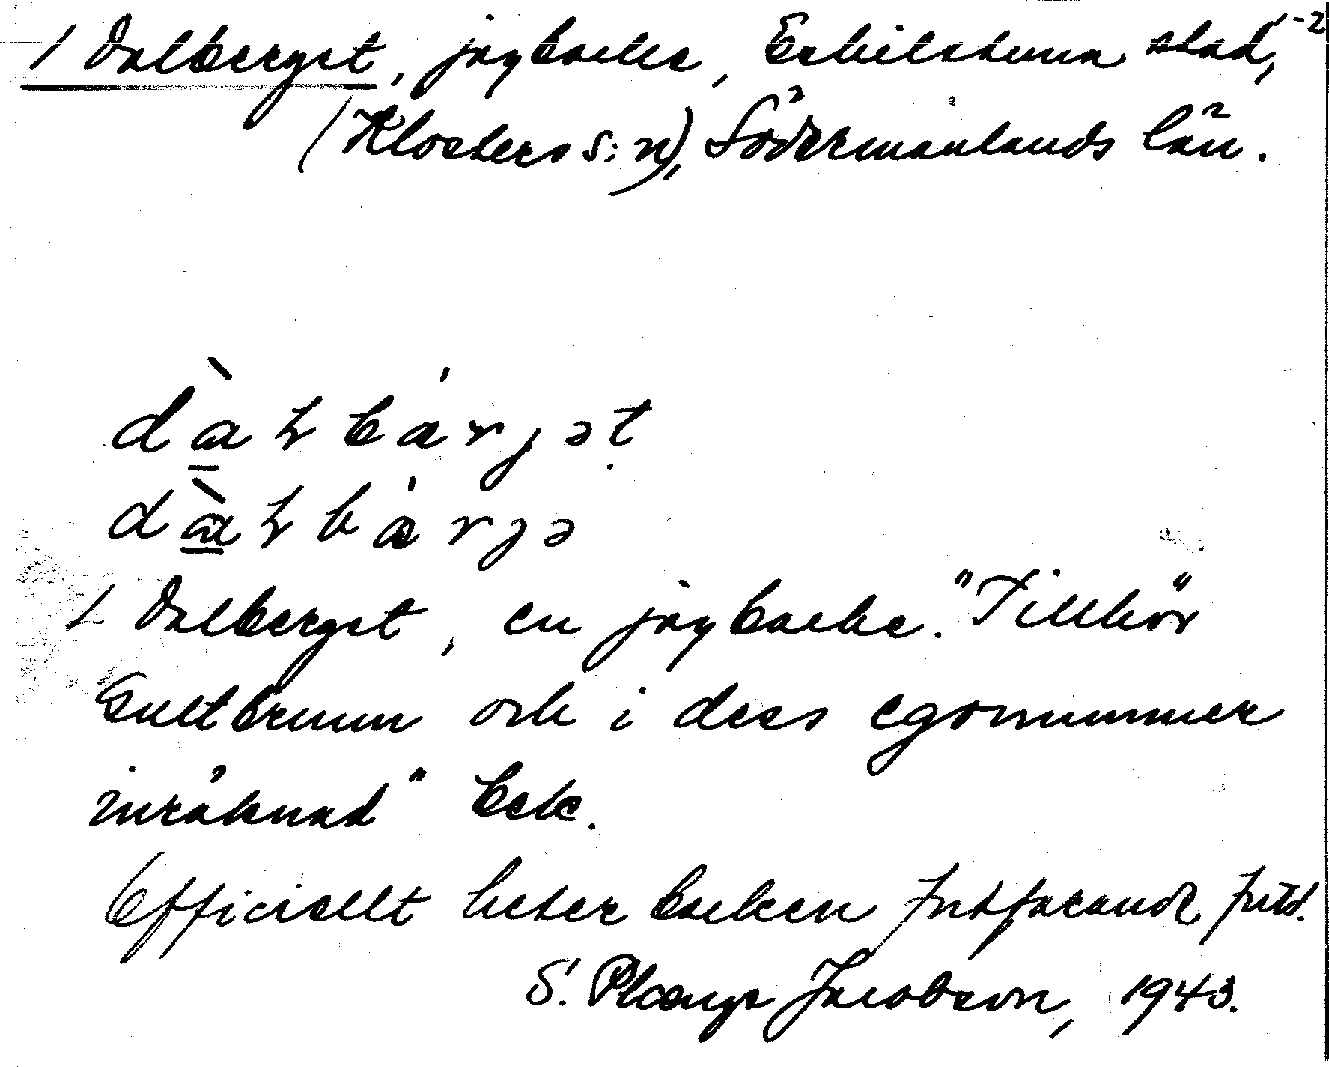 / Dalberget, jaybacke, Eskilstuna stad, 1-2
(Klosters s:n), Södermanlands län.
dàɫbärjət
dàɫbärjə
L Dalberget, en backe. "Tillhör
Gustbrunn och i dess egonummer
inräknad" Besk.
Officiellt heter backen fortfarande
S. Plænge Jacobson, 1943.